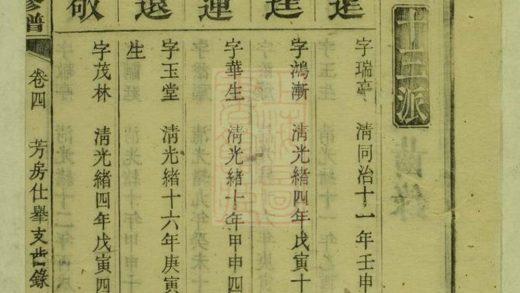 十三派
進
字瑞亭 清同治十一年壬申
逵
字鴻漸 清光緒四年戊寅十
運
字華生 清光緒十年甲申四
還
字玉堂 清光緒十六年庚寅
生
敬
字茂林 清光緒四年戊寅四
修譜
卷四 芳房仕舉支齒錄